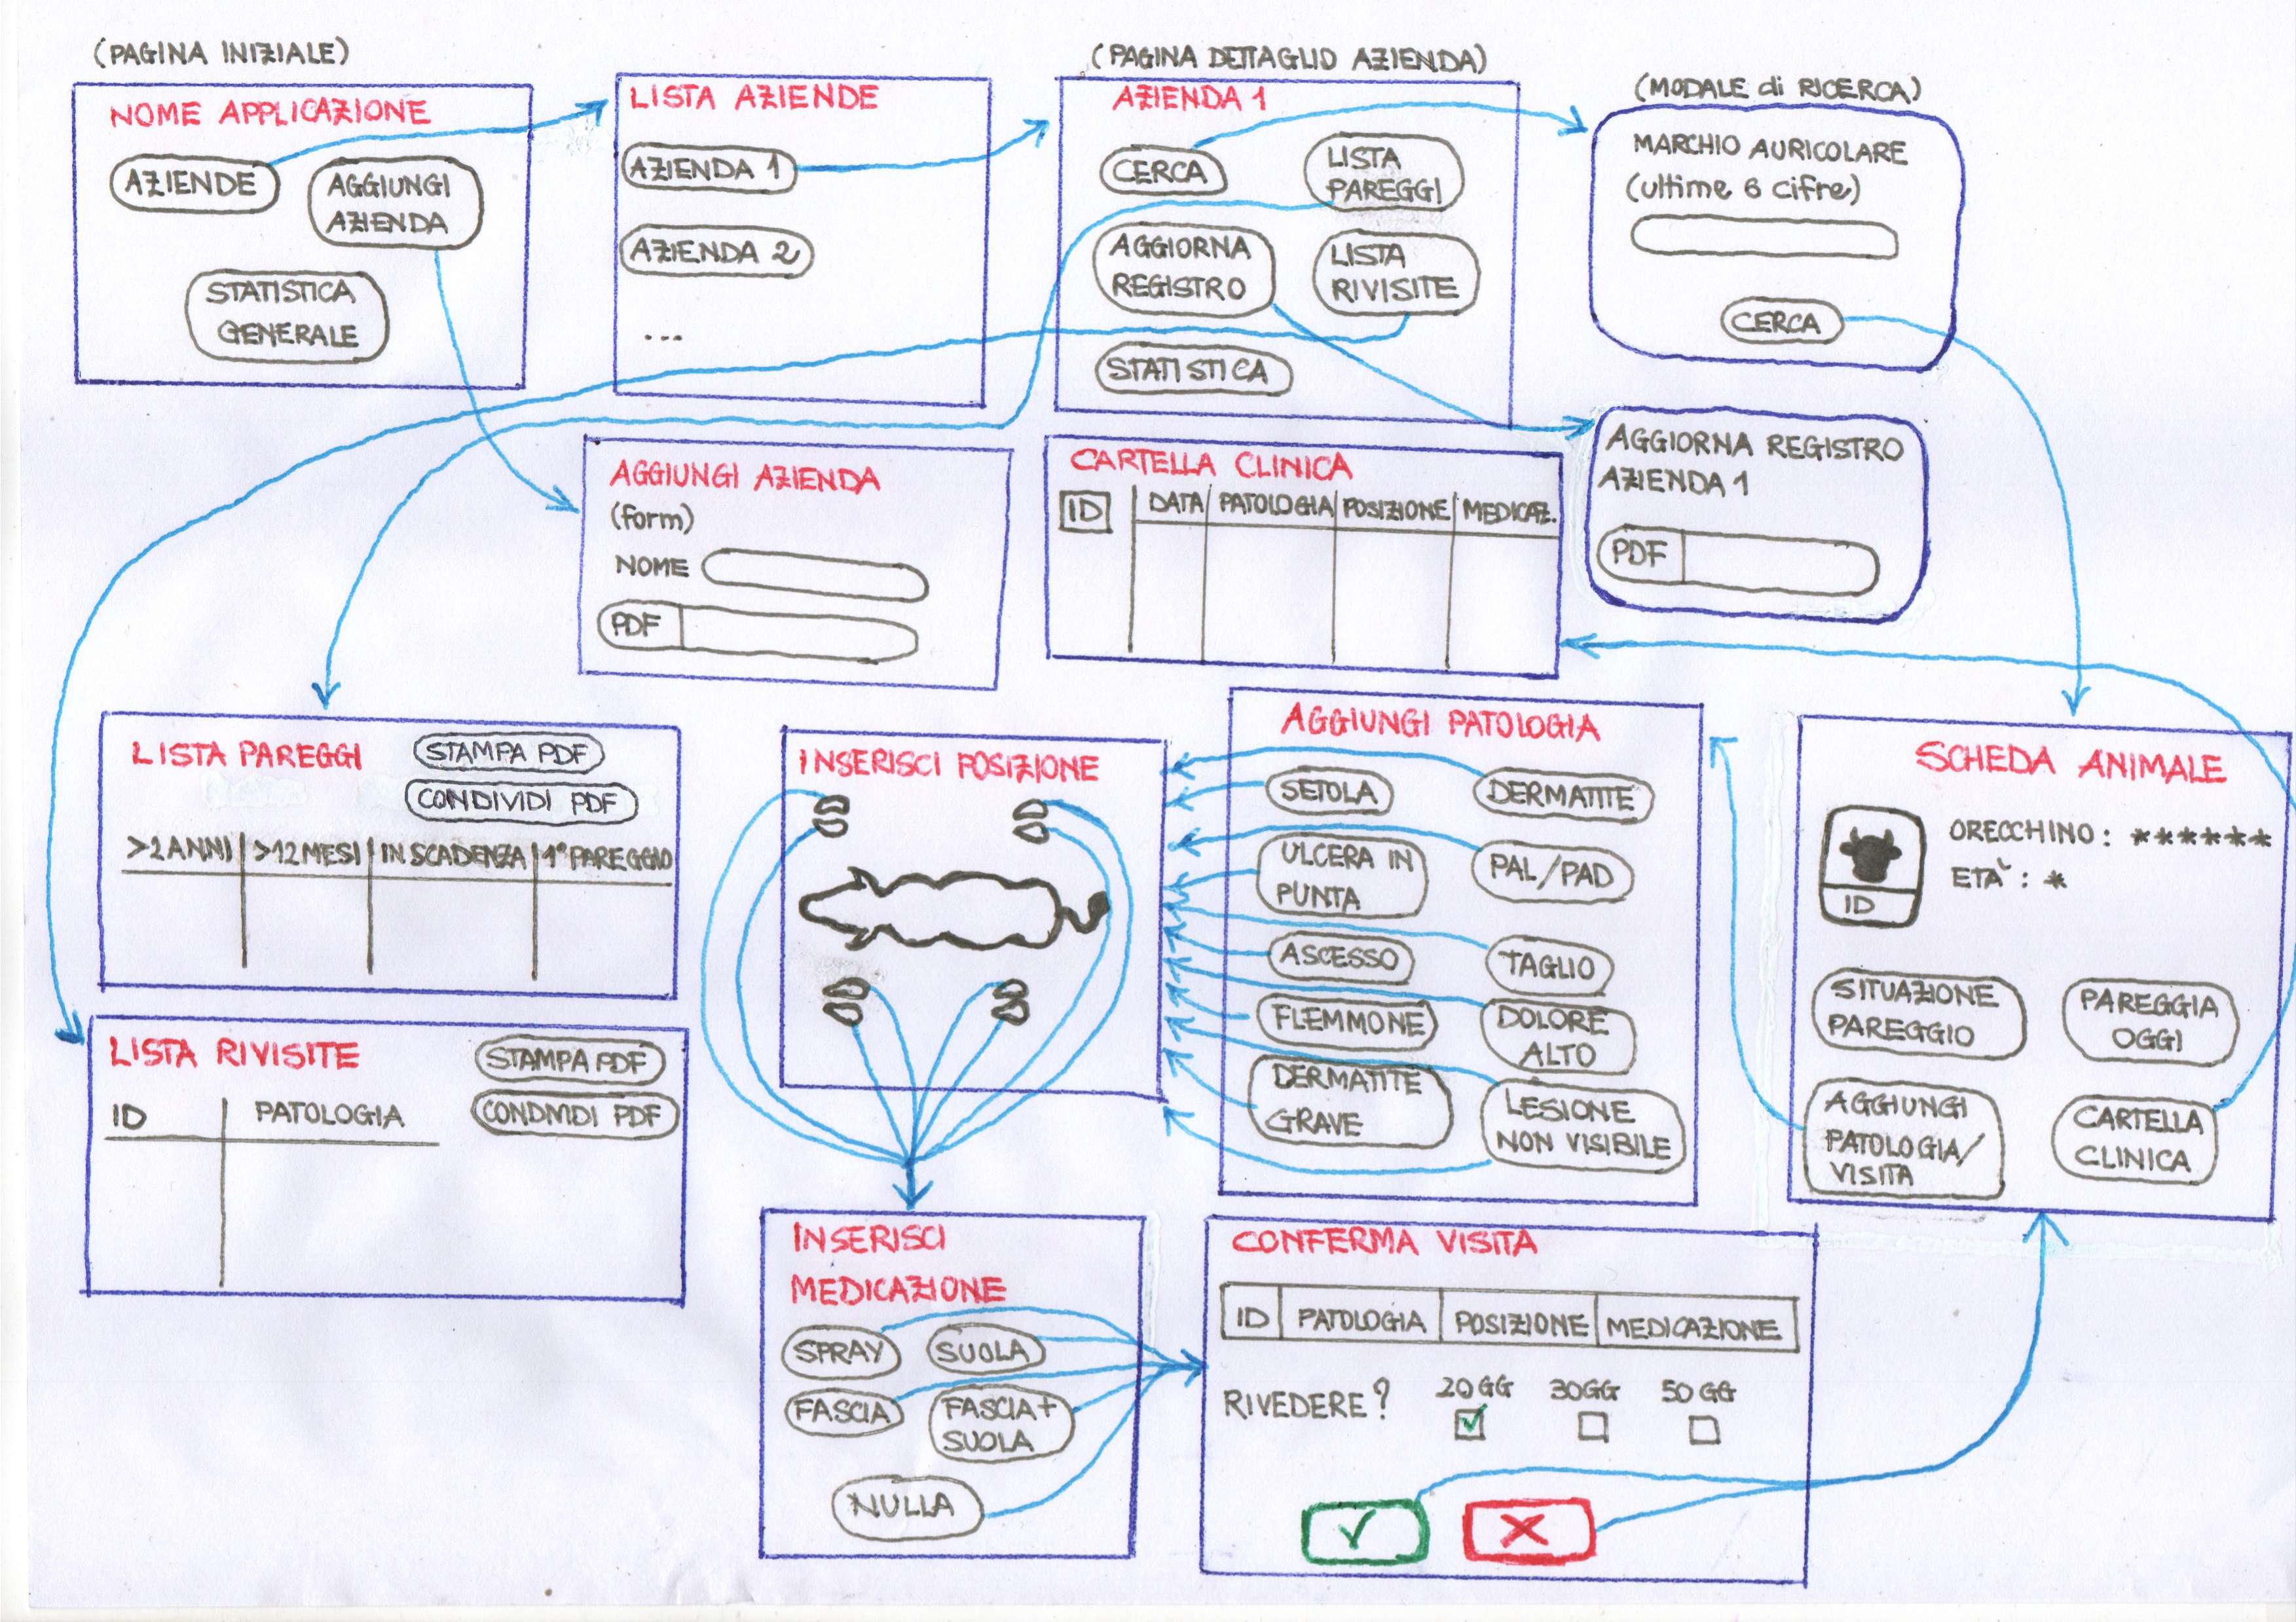 (PAGINA INIZIALE)
NOME APPLICAZIONE
AZIENDE
AGGIUNGI
AZIENDA
STATISTICA
GENERALE
LISTA AZIENDE
AZIENDA 1
AZIENDA 2
...
(PAGINA DETTAGLIO AZIENDA)
AZIENDA 1
CERCA
LISTA
PAREGGI
AGGIORNA
REGISTRO
LISTA
RIVISITE
STATISTICA
(MODALE di RICERCA)
MARCHIO AURICOLARE
(ultime 6 cifre)
CERCA
AGGIUNGI AZIENDA
(form)
NOME
PDF
CARTELLA CLINICA
ID
DATA PATOLOGIA POSIZIONE MEDICAZ.
AGGIORNA REGISTRO
AZIENDA 1
PDF
LISTA PAREGGI
STAMPA PDF
CONDIVIDI PDF
>2 ANNI >12 MESI IN SCADENZA 1° PAREGGIO
LISTA RIVISITE
STAMPA PDF
CONDIVIDI PDF
ID PATOLOGIA
INSERISCI POSIZIONE
AGGIUNGI PATOLOGIA
SETOLA
DERMATITE
ULCERA IN
PUNTA
PAL/PAD
ASCESSO
TAGLIO
FLEMMONE
DOLORE
ALTO
DERMATITE
GRAVE
LESIONE
NON VISIBILE
SCHEDA ANIMALE
ID
ORECCHINO: ******
ETÀ: *
SITUAZIONE
PAREGGIO
PAREGGIA
OGGI
AGGIUNGI
PATOLOGIA/
VISITA
CARTELLA
CLINICA
INSERISCI
MEDICAZIONE
SPRAY
SUOLA
FASCIA
FASCIA+
SUOLA
NULLA
CONFERMA VISITA
ID PATOLOGIA POSIZIONE MEDICAZIONE
RIVEDERE? 20GG 30GG 50GG